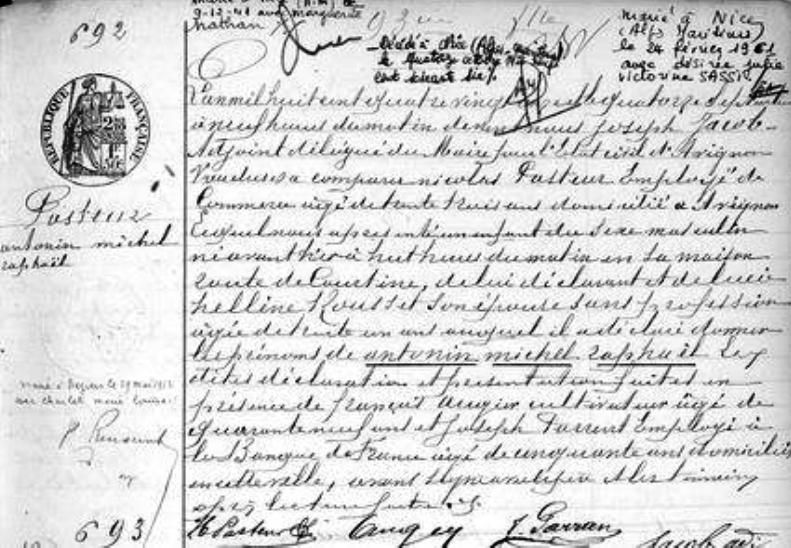 692
9-12-41 avec marguerite
Nathan
marié à Nice
(Alpes Maritimes)
le 24 février 1961
avec désirée julie
victorine SASSI
Décédé à Nice
le quatorze octobre mil neuf
cent soixante six
RÉPUBLIQUE FRANÇAISE
Pasteur
antonin michel
raphaël
L'an mil huit cent quatre vingt et le quatorze Septembre
à neuf heures du matin devant nous Joseph Jacob
Adjoint délégué du Maire pour l'Etat civil d'Avignon
Vaucluse a comparu nicolas Pasteur Employé de
Commerce âgé de trente trois ans domicilié à Avignon
Lequel nous a présenté un enfant du Sexe masculin
né avant hier à huit heures du matin en sa maison
route de Courtine, de lui déclarant et de lucie
helline Rousset son épouse sans profession
âgée de trente un ans auquel il a déclaré donner
les prénoms de antonin michel raphaël Les
dites déclaration et présentation faites en
présence de françois augier cultivateur âgé de
quarante neuf ans et Joseph Parrent Employé à
la Banque de France âgé de cinquante ans domiciliés
en cette ville, ayant signé avec le père et les témoins
après lecture faite
marié à le 29 mai 1912
avec charlet marie louise
693
N Pasteur augier J. Parran
Jacob adj